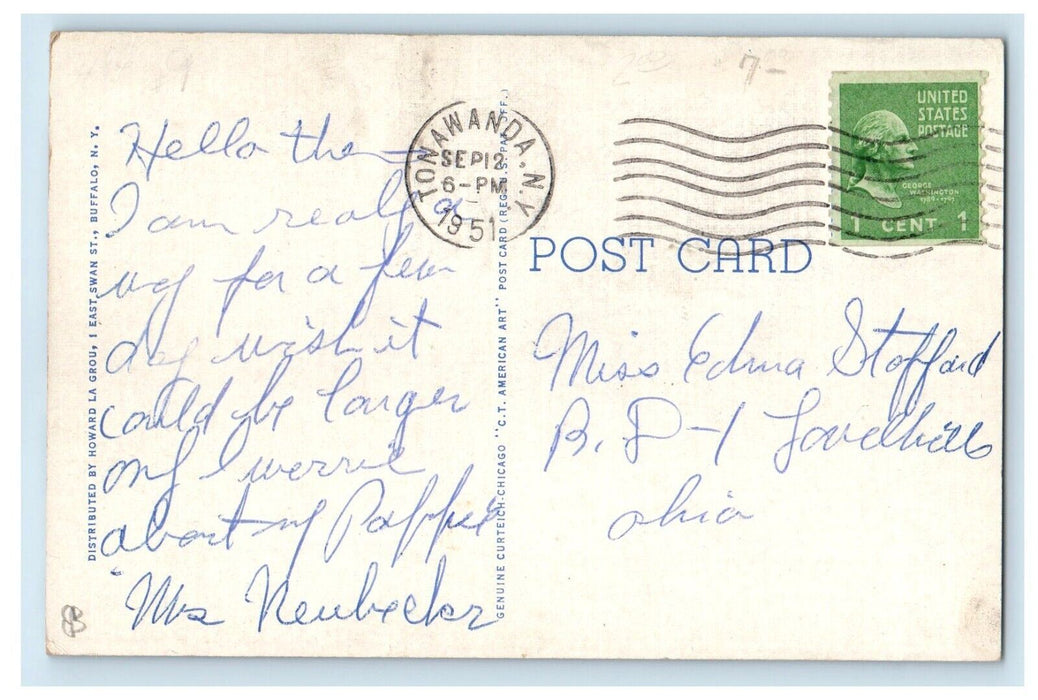 7-
UNITED
STATES
POSTAGE
GEORGE
WASHINGTON
1789-1797
1 CENT 1
TONAWANDA, N.Y.
SEP 12
6-PM
1951
POST CARD
Hello the
I am realy a
way for a few
day wish it
could be longer
only I werrie
about my Pappie
Mrs Neubecker
Miss Edna Stoffard
R. D-1
ohio
DISTRIBUTED BY HOWARD LA GROU, 1 EAST SWAN ST., BUFFALO, N. Y.
GENUINE CURTEICH-CHICAGO "C.T. AMERICAN ART" POST CARD (REG. U.S. PAT. OFF.)